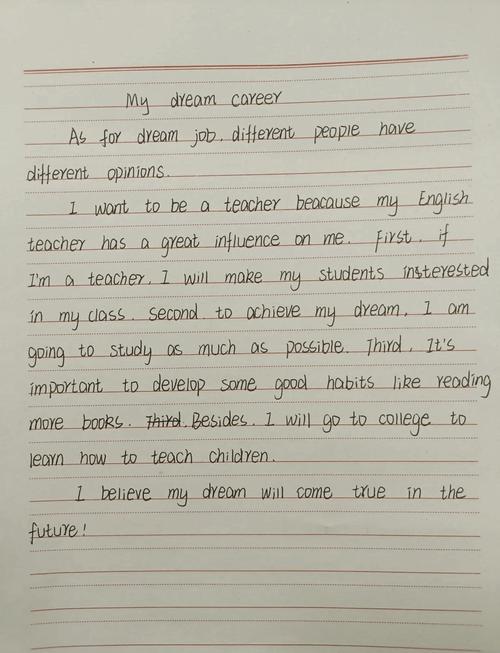 My dream career
As for dream job, different people have
different opinions.
I want to be a teacher beacause my English
teacher has a great influence on me. First, if
I'm a teacher, I will make my students insterested
in my class. Second, to achieve my dream, I am
going to study as much as possible. Third, It's
important to develop some good habits like reading
more books. Third, Besides, I will go to college to
learn how to teach children.
I believe my dream will come true in the
future!